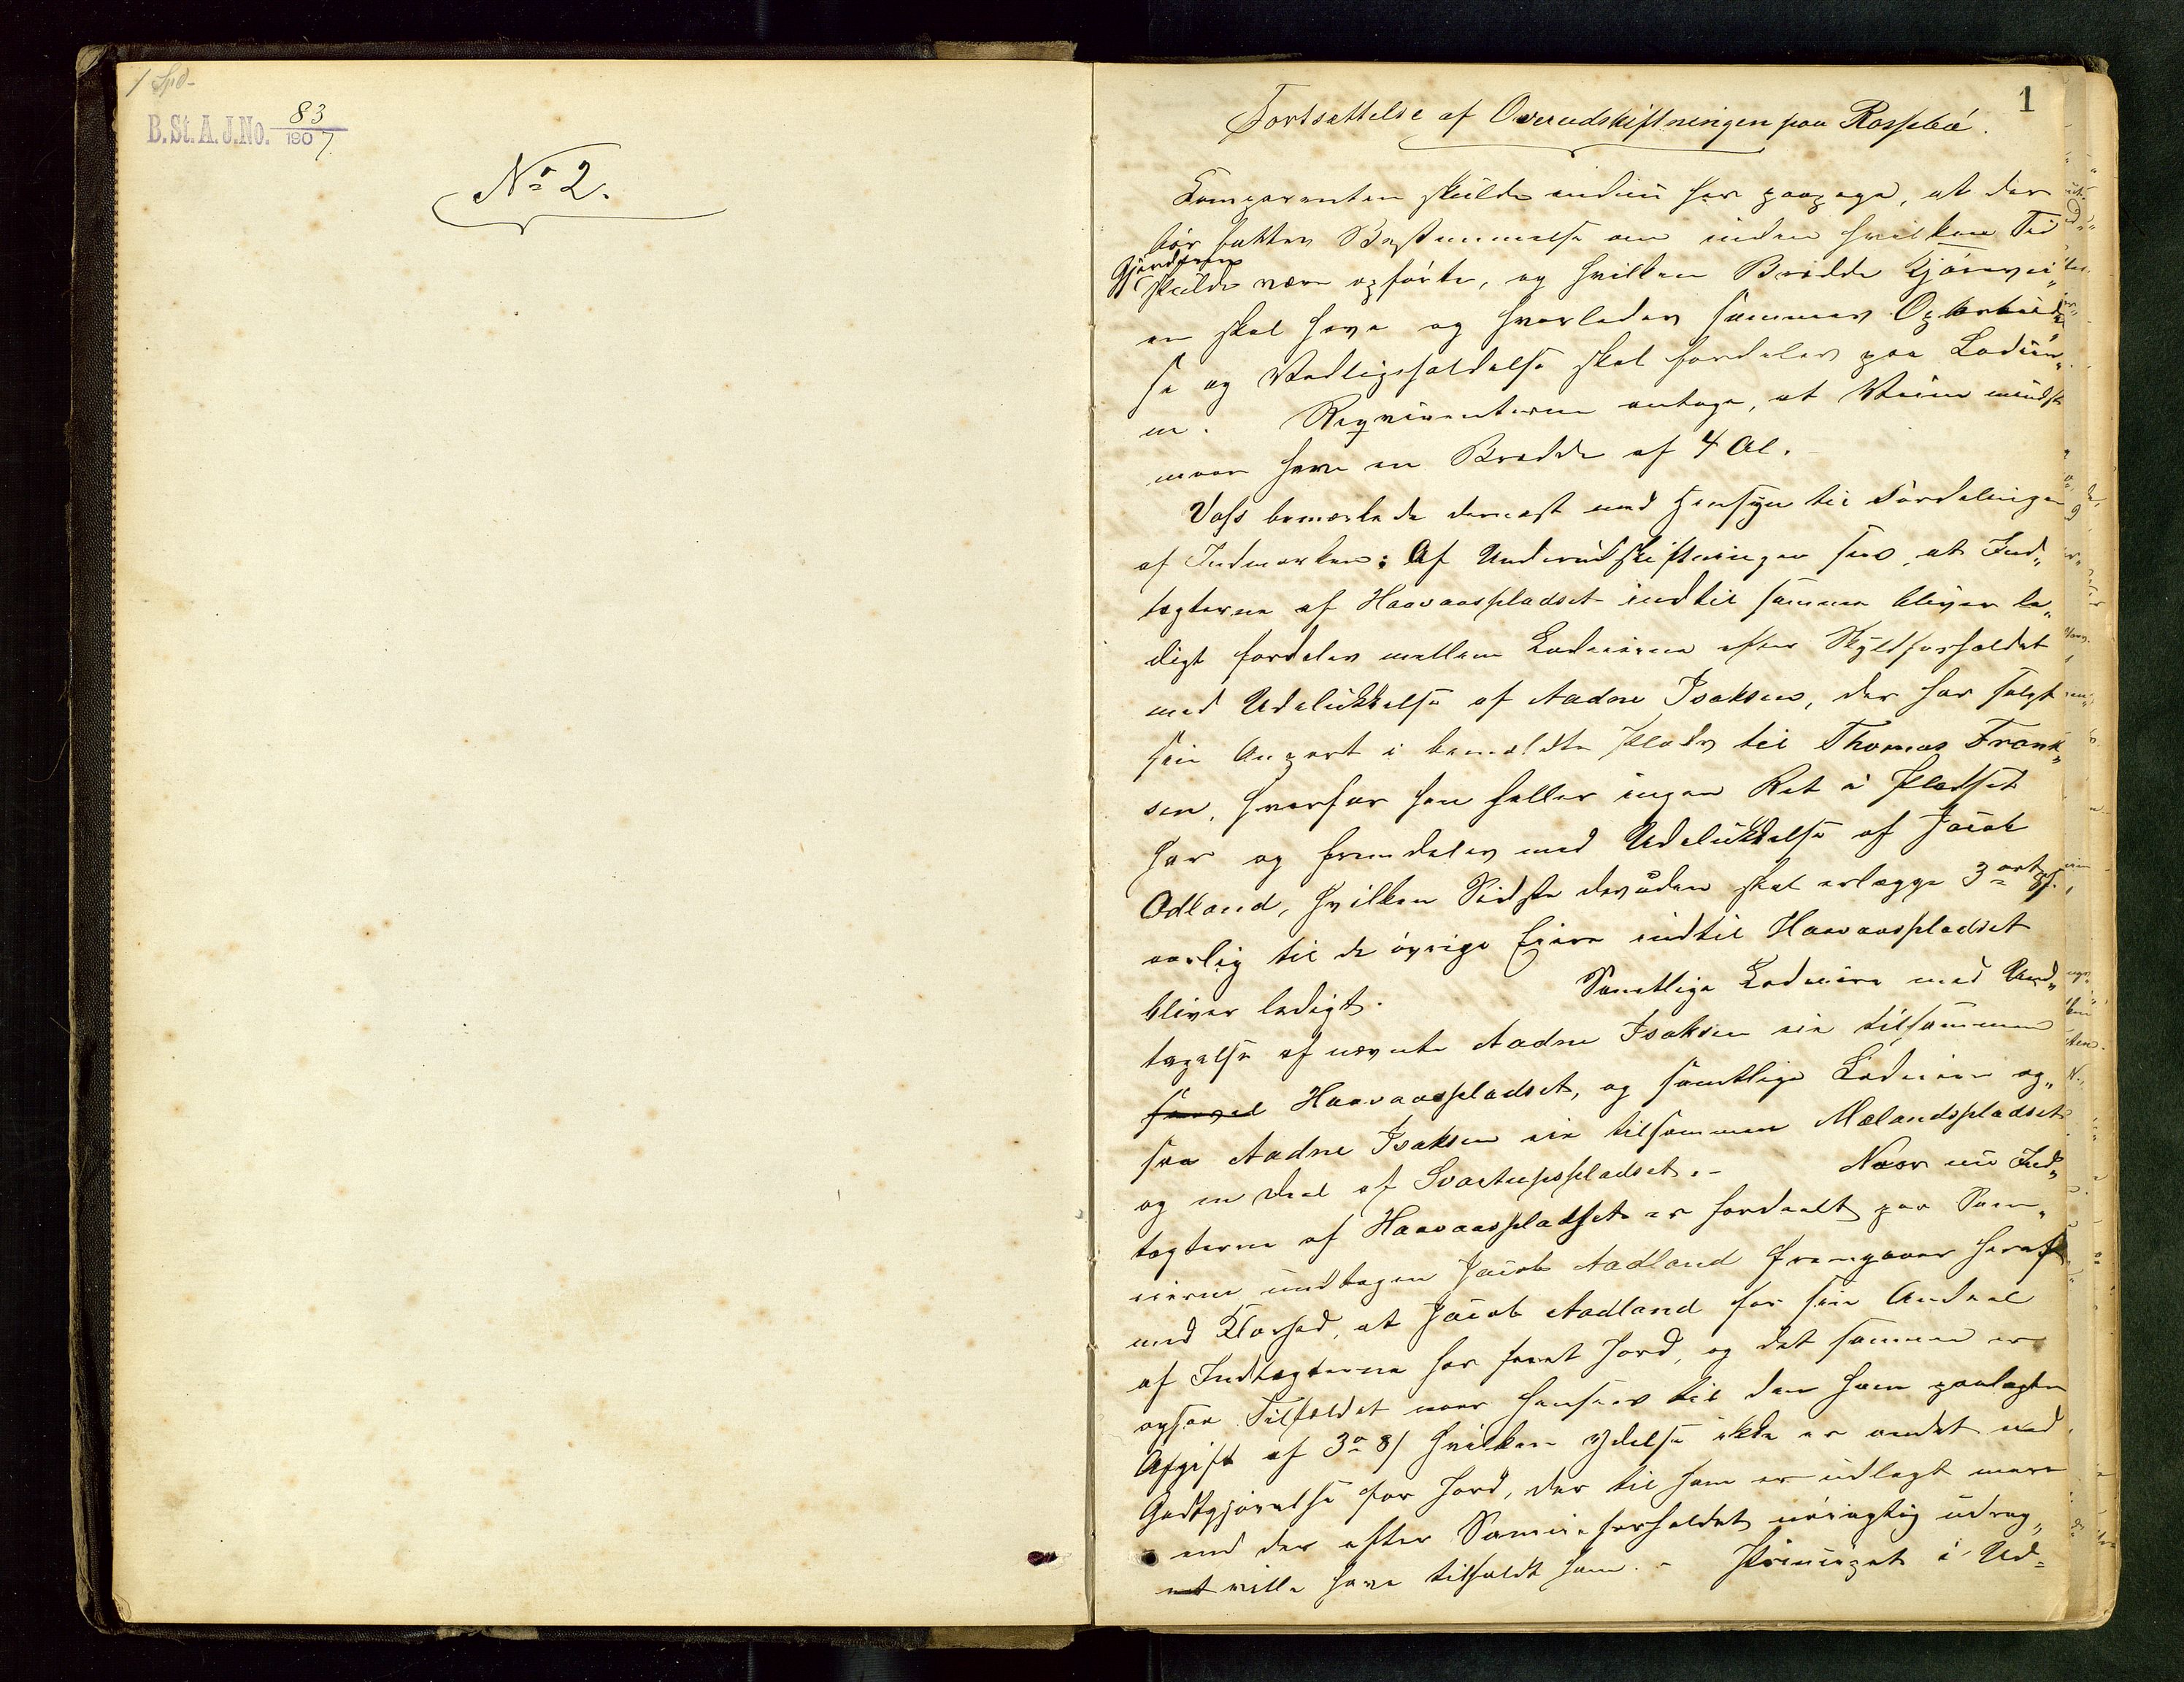 1 Spd-
B.St.A.J.No. 83
1907
No 2.
1
Fortsættelse af Overudskiftningen paa Rossebø.
Komparenten skulde endnu her paapege, at der
bør fattes Bestemmelse om inden hvilken Tid
Gjærderne
skulde være opførte, og hvilken Bredde Kjørevei„
en skal have og hvorledes sammes Oparbeidel„
se og Vedligeholdelse skal fordeles paa Lodeier„
ne. Reqvirenterne antage, at Veien mindst
maa have en Bredde af 4 Al.
Vass bemærkede dernæst med Hensyn til Fordelingen
af Indmarken: Af Underudskiftningen sees, at Ind„
tægterne af Haavaaspladset indtil samme bliver le„
digt fordeles mellem Lodeierne efter Skyldforholdet
med Udelukkelse af Aadne Isaksen, der har solgt
sin Anpart i bemeldte Plads til Thomas Frank„
sen, hvorfor han heller ingen Ret i Pladset
har og fremdeles med Udelukkelse af Jacob
Odland, hvilken Sidste desuden skal erlægge 3 ort 8 s.
aarlig til de øvrige Eiere indtil Haavaaspladset
bliver ledigt. Samtlige Lodeiere med Und„
tagelse af nævnte Aadne Isaksen eie tilsammen
saavel Haavaaspladset, og samtlige Lodeiere og„
saa Aadne Isaksen eie tilsammen Mælandspladset
og en Deel af Svartupspladset.- Naar nu Ind„
tægterne af Haavaaspladset er fordeelt paa Sam„
eierne undtagen Jacob Aadland fremgaaer heraf
med Klarhed, at Jacob Aadland for sin Andeel
af Indtægterne har faaet Jord, og det samme er
ogsaa Tilfældet naar henses til den ham paalagte
Afgift af 3 o 8 s hvilken Ydelse ikke er andet end
Godtgjørelse for Jord, der til ham er udlagt mere
end der efter Sameieforholdet nøiagtig udreg„
net vilde have tilfaldt ham. - Principet i Ud=